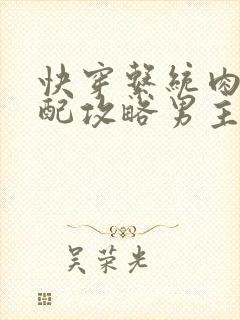 快穿系统肉
配攻略男主
吴荣光